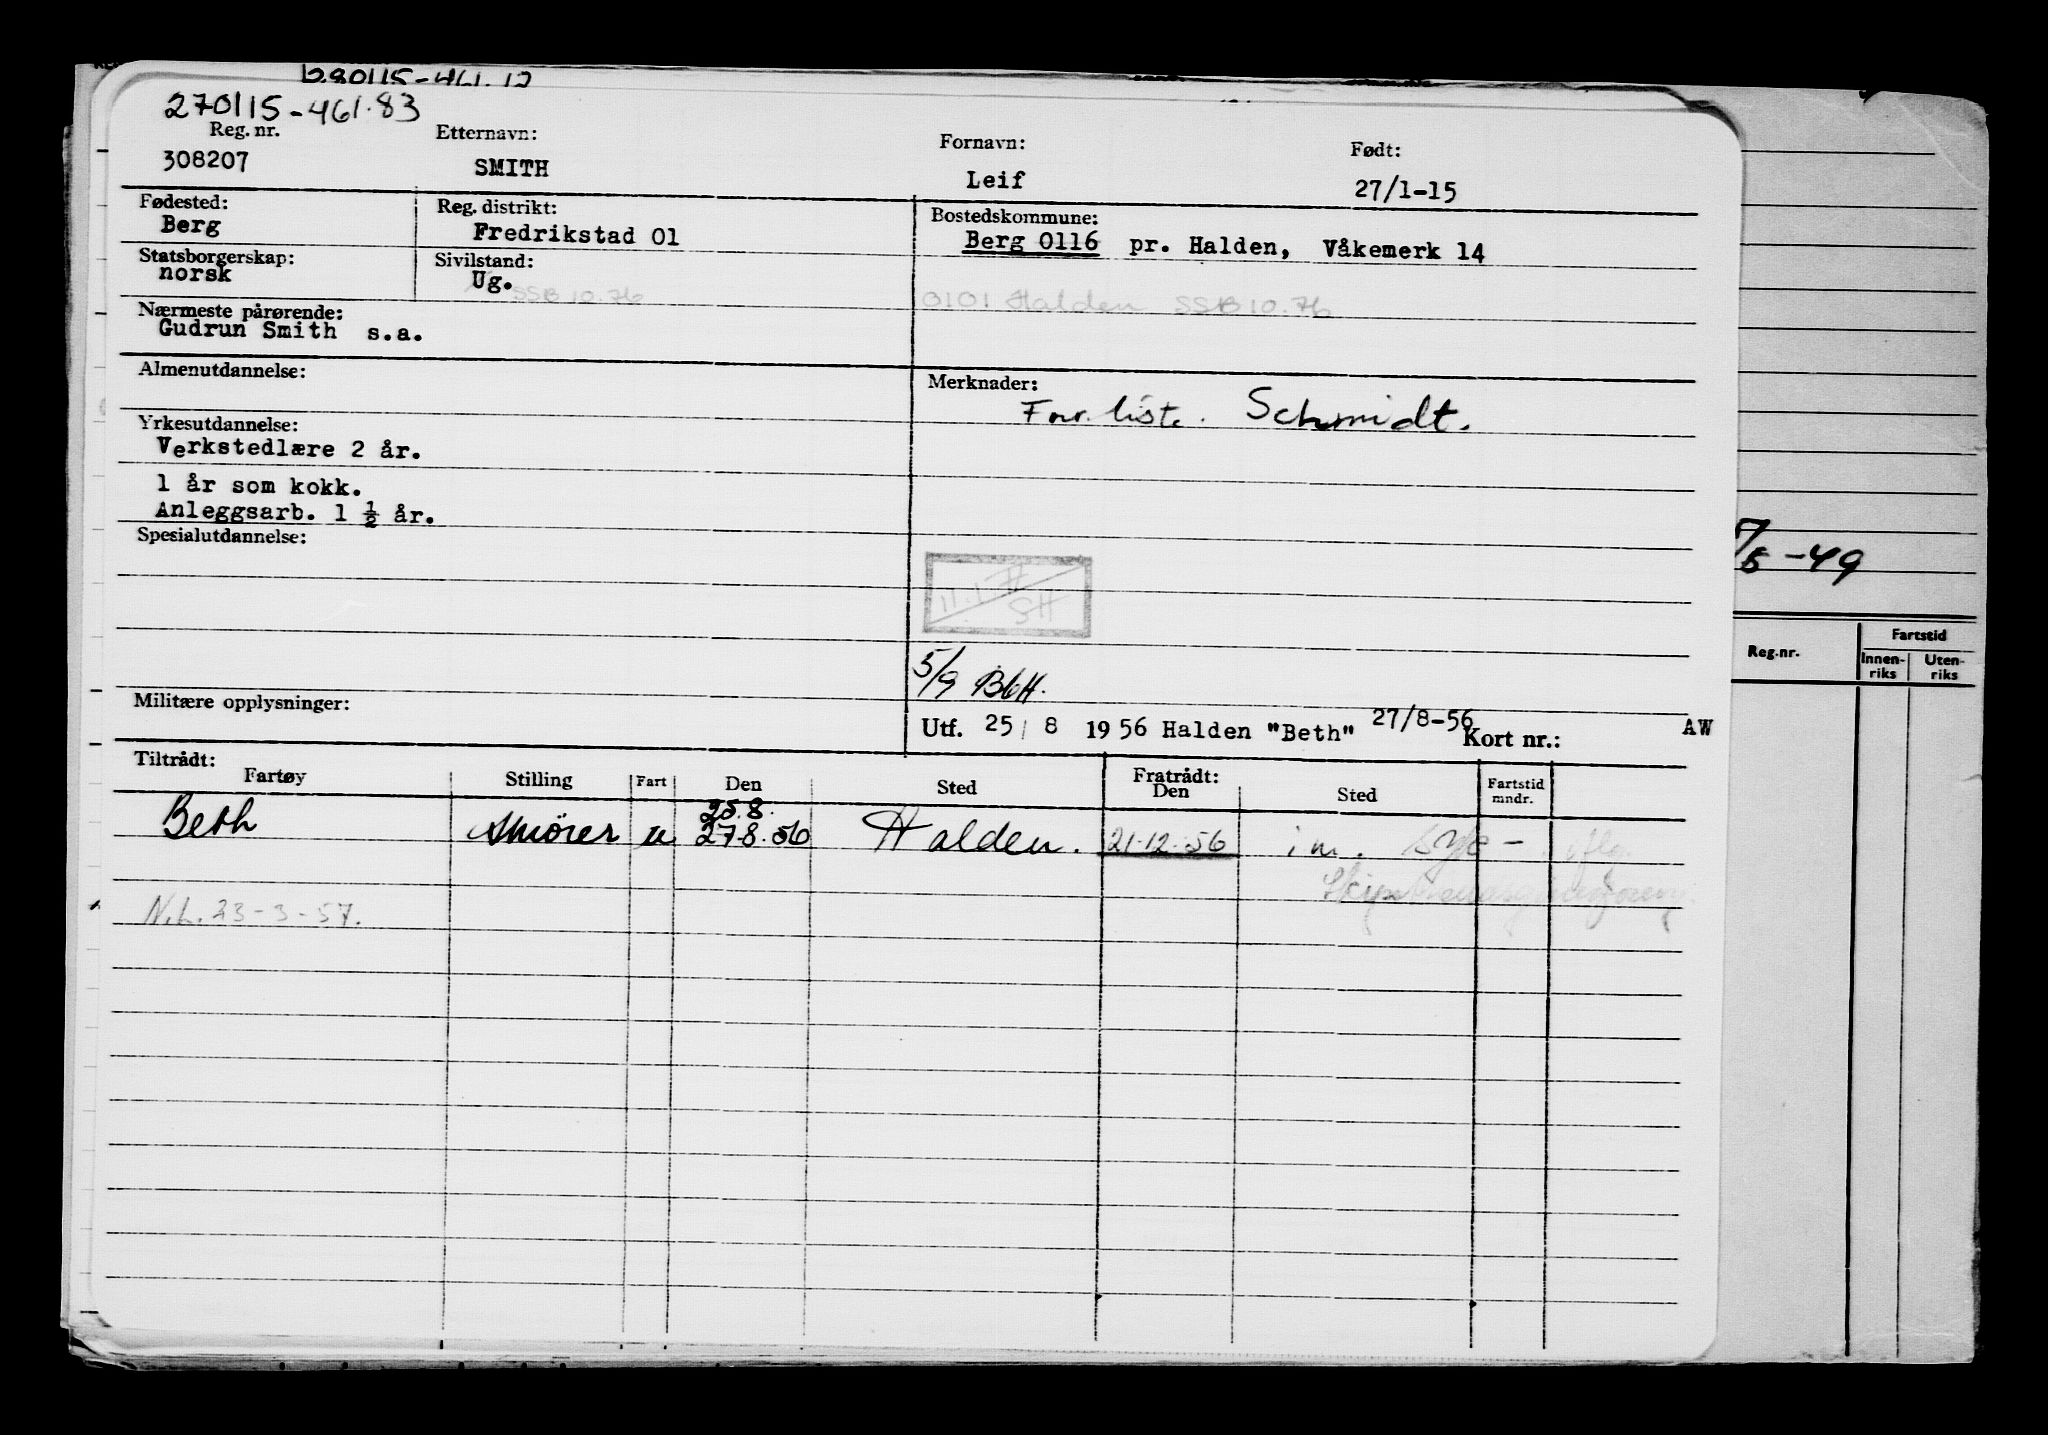 280115-461.12
270115-461.83
Reg. nr. Etternavn: Fornavn: Født:
308207 SMITH Leif 27/1-15
Fødested: Reg. distrikt: Bostedskommune:
Berg Fredrikstad 01 Berg 0116 pr. Halden, Våkemerk 14
Statsborgerskap: Sivilstand:
norsk Ug.
SSB 10.76 0101 Halden SSB 10.76
Nærmeste pårørende:
Gudrun Smith s.a.
Almenutdannelse: Merknader:
For. liste. Schmidt.
Yrkesutdannelse:
Verkstedlære 2 år.
1 år som kokk.
Anleggsarb. 1 ½ år.
Spesialutdannelse:
7/5-49
SH
Reg.nr. Fartstid
Innen-riks Uten-riks
5/9 BbH.
Militære opplysninger:
Utf. 25/8 1956 Halden "Beth" 27/8-56 Kort nr.: AW
Tiltrådt: Fratrådt:
Fartøy Stilling Fart Den Sted Den Sted Fartstid mndr.
25.8.
Beth Smører u 27.8.56 Halden. 21.12.56 i m. syk-
N.L. 23-3-57.